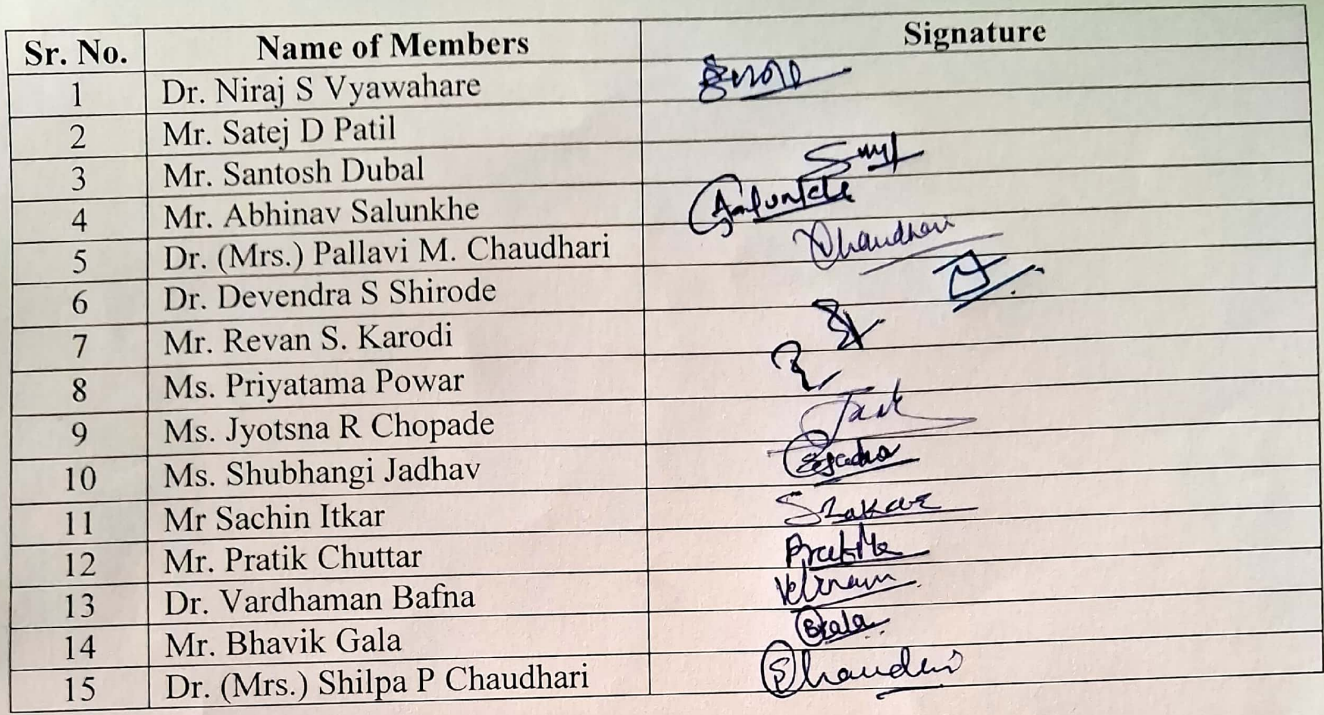 Sr. No. Name of Members Signature
1 Dr. Niraj S Vyawahare
2 Mr. Satej D Patil
3 Mr. Santosh Dubal
4 Mr. Abhinav Salunkhe
5 Dr. (Mrs.) Pallavi M. Chaudhari
6 Dr. Devendra S Shirode
7 Mr. Revan S. Karodi
8 Ms. Priyatama Powar
9 Ms. Jyotsna R Chopade
10 Ms. Shubhangi Jadhav
11 Mr Sachin Itkar
12 Mr. Pratik Chuttar
13 Dr. Vardhaman Bafna
14 Mr. Bhavik Gala
15 Dr. (Mrs.) Shilpa P Chaudhari